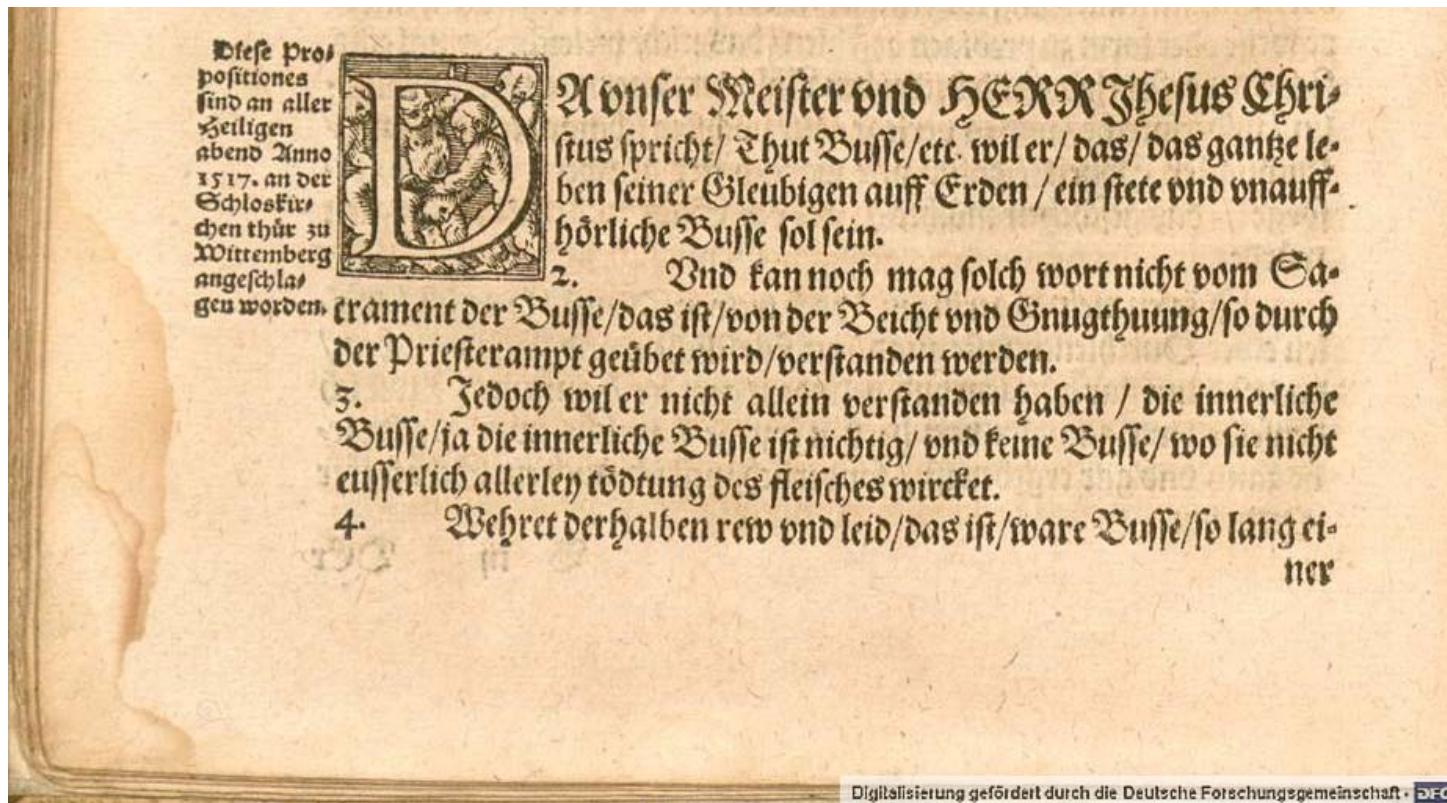 Diese Pro-
positiones
sind an aller
Heiligen
abend Anno
1517. an der
Schloskir-
chen thür zu
Wittemberg
angeschla-
gen worden.
DA vnser Meister vnd HERR Jhesus Chri-
stus spricht/ Thut Busse/etc. wil er/ das/ das gantze le-
ben seiner Gleubigen auff Erden / ein stete vnd vnauff-
hörliche Busse sol sein.
2. Vnd kan noch mag solch wort nicht vom Sa-
crament der Busse/das ist/von der Beicht vnd Gnugthuung/so durch
der Priesterampt geübet wird/verstanden werden.
3. Jedoch wil er nicht allein verstanden haben / die innerliche
Busse/ja die innerliche Busse ist nichtig/ vnd keine Busse/ wo sie nicht
eusserlich allerley tödtung des fleisches wircket.
4. Wehret derhalben rew vnd leid/das ist/ware Busse/so lang ei-
ner
Digitalisierung gefördert durch die Deutsche Forschungsgemeinschaft · DFG